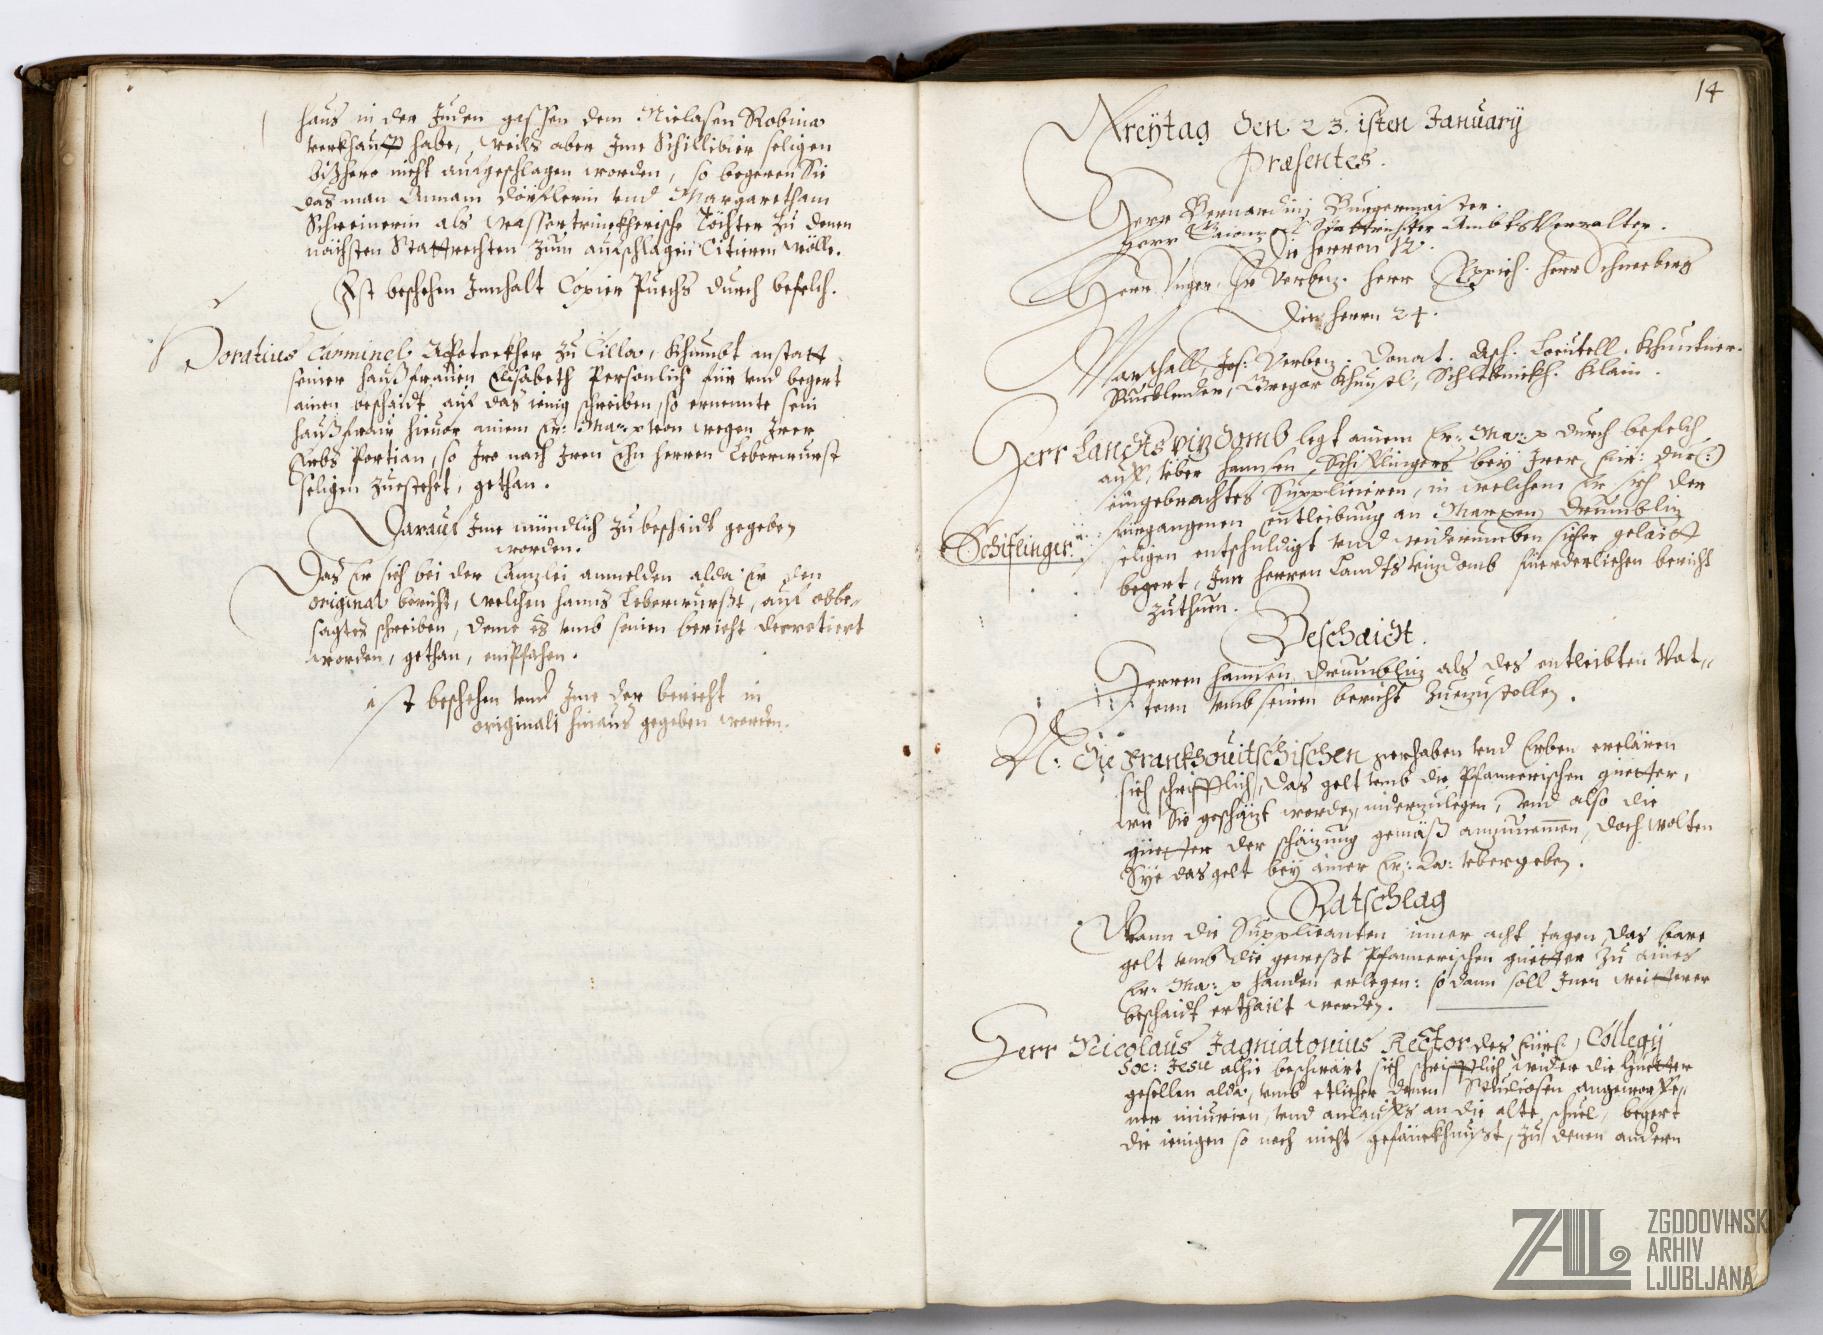 haus in der Juden gassen dem Niclasen Robina
verkhaufft habe, weils aber Jme Schillibier seligen
bißhero nicht aufgeschlagen worden, so begeren Sie
das man Annam Dörflerin vnd Margaretham
Schreinerin als Wassertrinckherische Töchter zu denen
nächsten Stattrechten zum aufschlagen Citieren wölle.
Ist beschehen Jnnhalt Copier Puechs durch befelch.
Donatius Carminel Apotekher zu Cilla, khumbt anstatt
seiner haußfrauen Elisabeth Persönlich für vnd begert
ainen beschaidt auf das ienig schreiben, so ernennte sein
haußfrau hieuor ainem Er: Ma: wegen Jrer
Erbs Portian, so Jro nach Jren Ehn herren Leberwurst
seligen zuestehet, gethan.
Darauf Jme mündlich zu beschaidt gegeben
worden.
Das Er sich bei der Canzlei anmelden alda Er den
original bericht, welchen hanns Leberwurßt, auf obbe„
sagtes schreiben, deme es vmb seinen bericht decretiert
worden, gethan, empfahen.
ist beschehen vnd Jme der bericht in
originali hinaus gegeben worden.
14
Freÿtag den 23. isten Januarÿ
Præsentes.
Herr Bernardinj Burgermaister.
Herr Stattrichter AmbtsVerwalter.
Die herren 12.
Herr Vnger. Hr Verbez. herr Eppich. herr Schneeberg
Die herrn 24.
Marschall, Jos: Verbez. Donat. Loentell. Khunstner.
Rueblender, Gregor Khunstl, Schlebnickh. Klain.
Herr Landts vizdomb legt ainem Er: Ma: durch befelch
auf, vber hannsen Schiflingers beÿ Jrer Für: Dur:
eingebrachtes Suppliciren, in welchem Er sich der
Schiflinger. fürgangenen entleibung an Marxen Drumbliz
seligen entschuldigt vnd widerumben sicher gelaitt
begert, Jme herren Landts vizdomb fürderlichen bericht
zuthuen.
Beschaidt.
Herren hannsen Drumbliz als des entleibten Vat„
tern vmb seinen bericht zuezustellen.
N: die Frankhouitschischen gerhaben vnd Erben erclären
sich schrifftlich, das gelt vmb die Pfannerischen güetter,
wie Sie geschäzt worden, niderzulegen, vnd also die
güetter der schäzung gemäß anzunemmen, doch wolten
Sÿe das gelt beÿ ainer Er: La: vbergeben.
Ratschlag
Wann die Supplicanten inner acht tagen das bare
gelt vmb die geweßt Pfannerischen güetter zu aines
Er: Ma: handen erlegen: sodann soll Jnen weitterer
beschaidt erthailt werden.
Herr Nicolaus Jagniatonius Rector des Collegÿ
Soc: Jesu alhie beschwärt sich schrifftlich wider die
gesellen alda, vmb etlicher denen Studiosen angeworffe„
ner iniurien, vnd anlauffs an die alte schuel, begert
die ienigen so noch nicht gefänckhnußt, zu denen andern
ZAL ZGODOVINSKI
ARHIV
LJUBLJANA